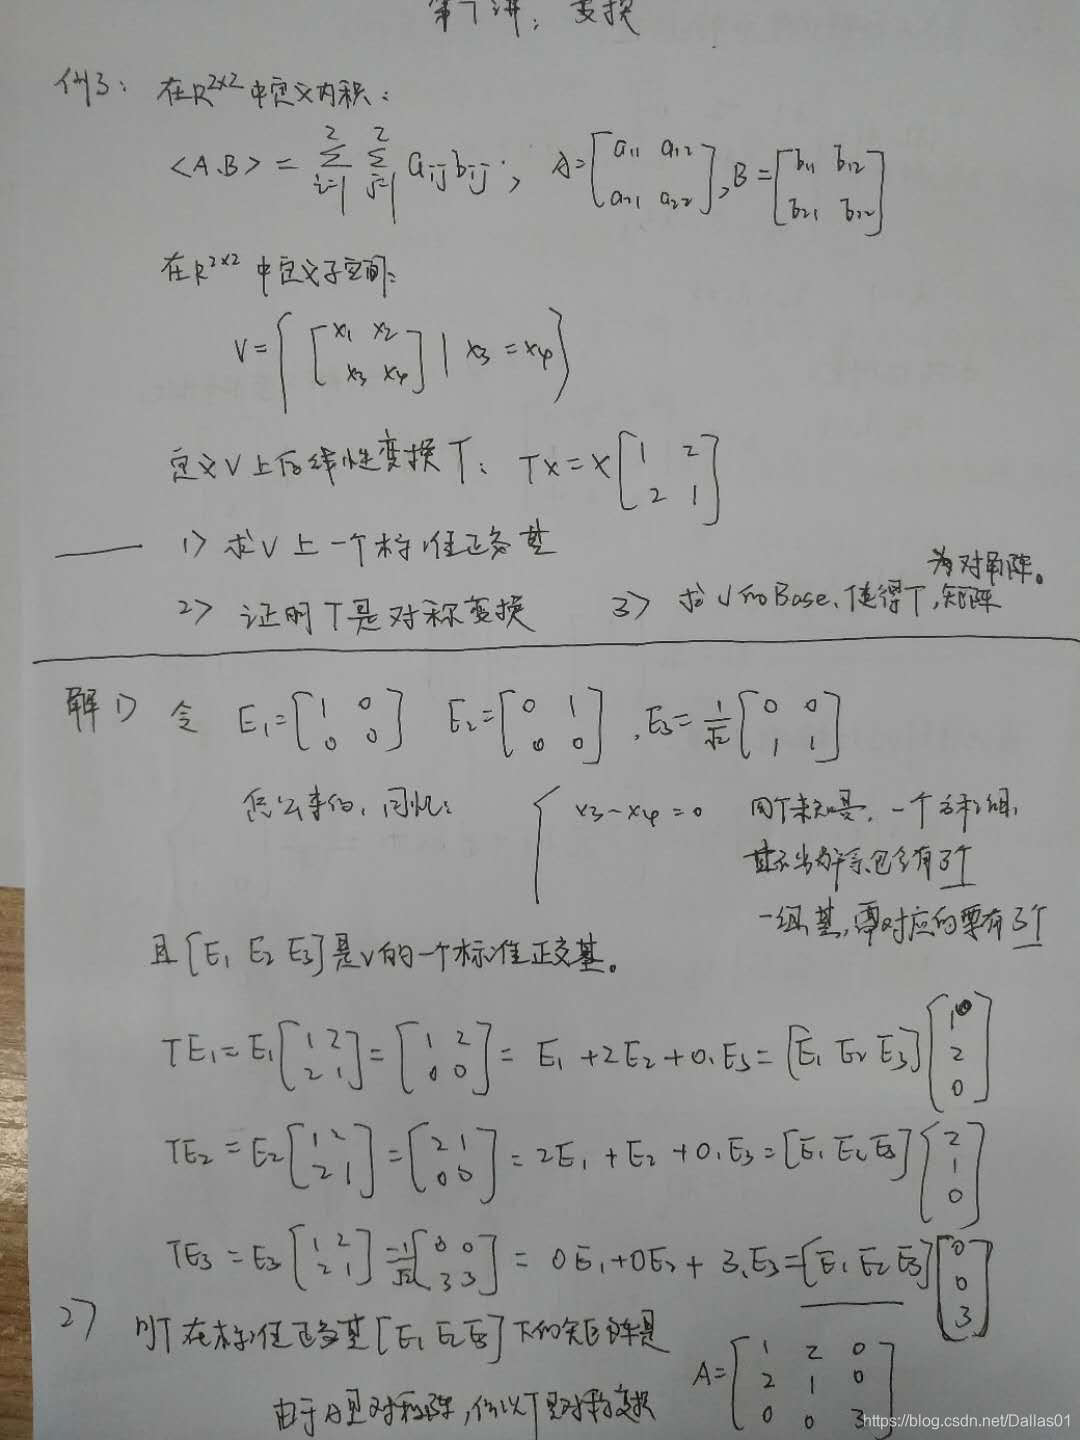 第7讲：变换
例3： 在R^{2×2}中定义内积：
<A.B> = \sum_{i=1}^{2} \sum_{j=1}^{2} a_{ij}b_{ij}; A=[a_{11} a_{12}; a_{21} a_{22}], B=[b_{11} b_{12}; b_{21} b_{22}]
在R^{2×2}中定义子空间：
V={[x_1 x_2; x_3 x_4] | x_3=x_4}
定义V上的线性变换T： TX=X[1 2; 2 1]
1> 求V上一个标准正交基
2> 证明T是对称变换 3> 求V的Base.使得T,矩阵为对角阵。
解1) 令 E_1=[1 0; 0 0] E_2=[0 1; 0 0] ,E_3=\frac{1}{√2}[0 0; 1 1]
怎么来的，回忆： { x_3-x_4=0 一个方程组,
基础解系包含有3个
一组基,对应的要有3个
且[E_1 E_2 E_3]是V的一个标准正交基。
TE_1=E_1[1 2; 2 1]=[1 2; 0 0]=E_1+2E_2+0.E_3=[E_1 E_2 E_3][1; 2; 0]
TE_2=E_2[1 2; 2 1]=[2 1; 0 0]=2E_1+E_2+0.E_3=[E_1 E_2 E_3][2; 1; 0]
TE_3=E_3[1 2; 2 1]=\frac{1}{√2}[0 0; 3 3]=0E_1+0E_2+3.E_3=[E_1 E_2 E_3][0; 0; 3]
2> 则T在标准正交基[E_1 E_2 E_3]下的矩阵是
A=[1 2 0; 2 1 0; 0 0 3]
由于A是对称阵,所以T是对称变换
https://blog.csdn.net/Dallas01